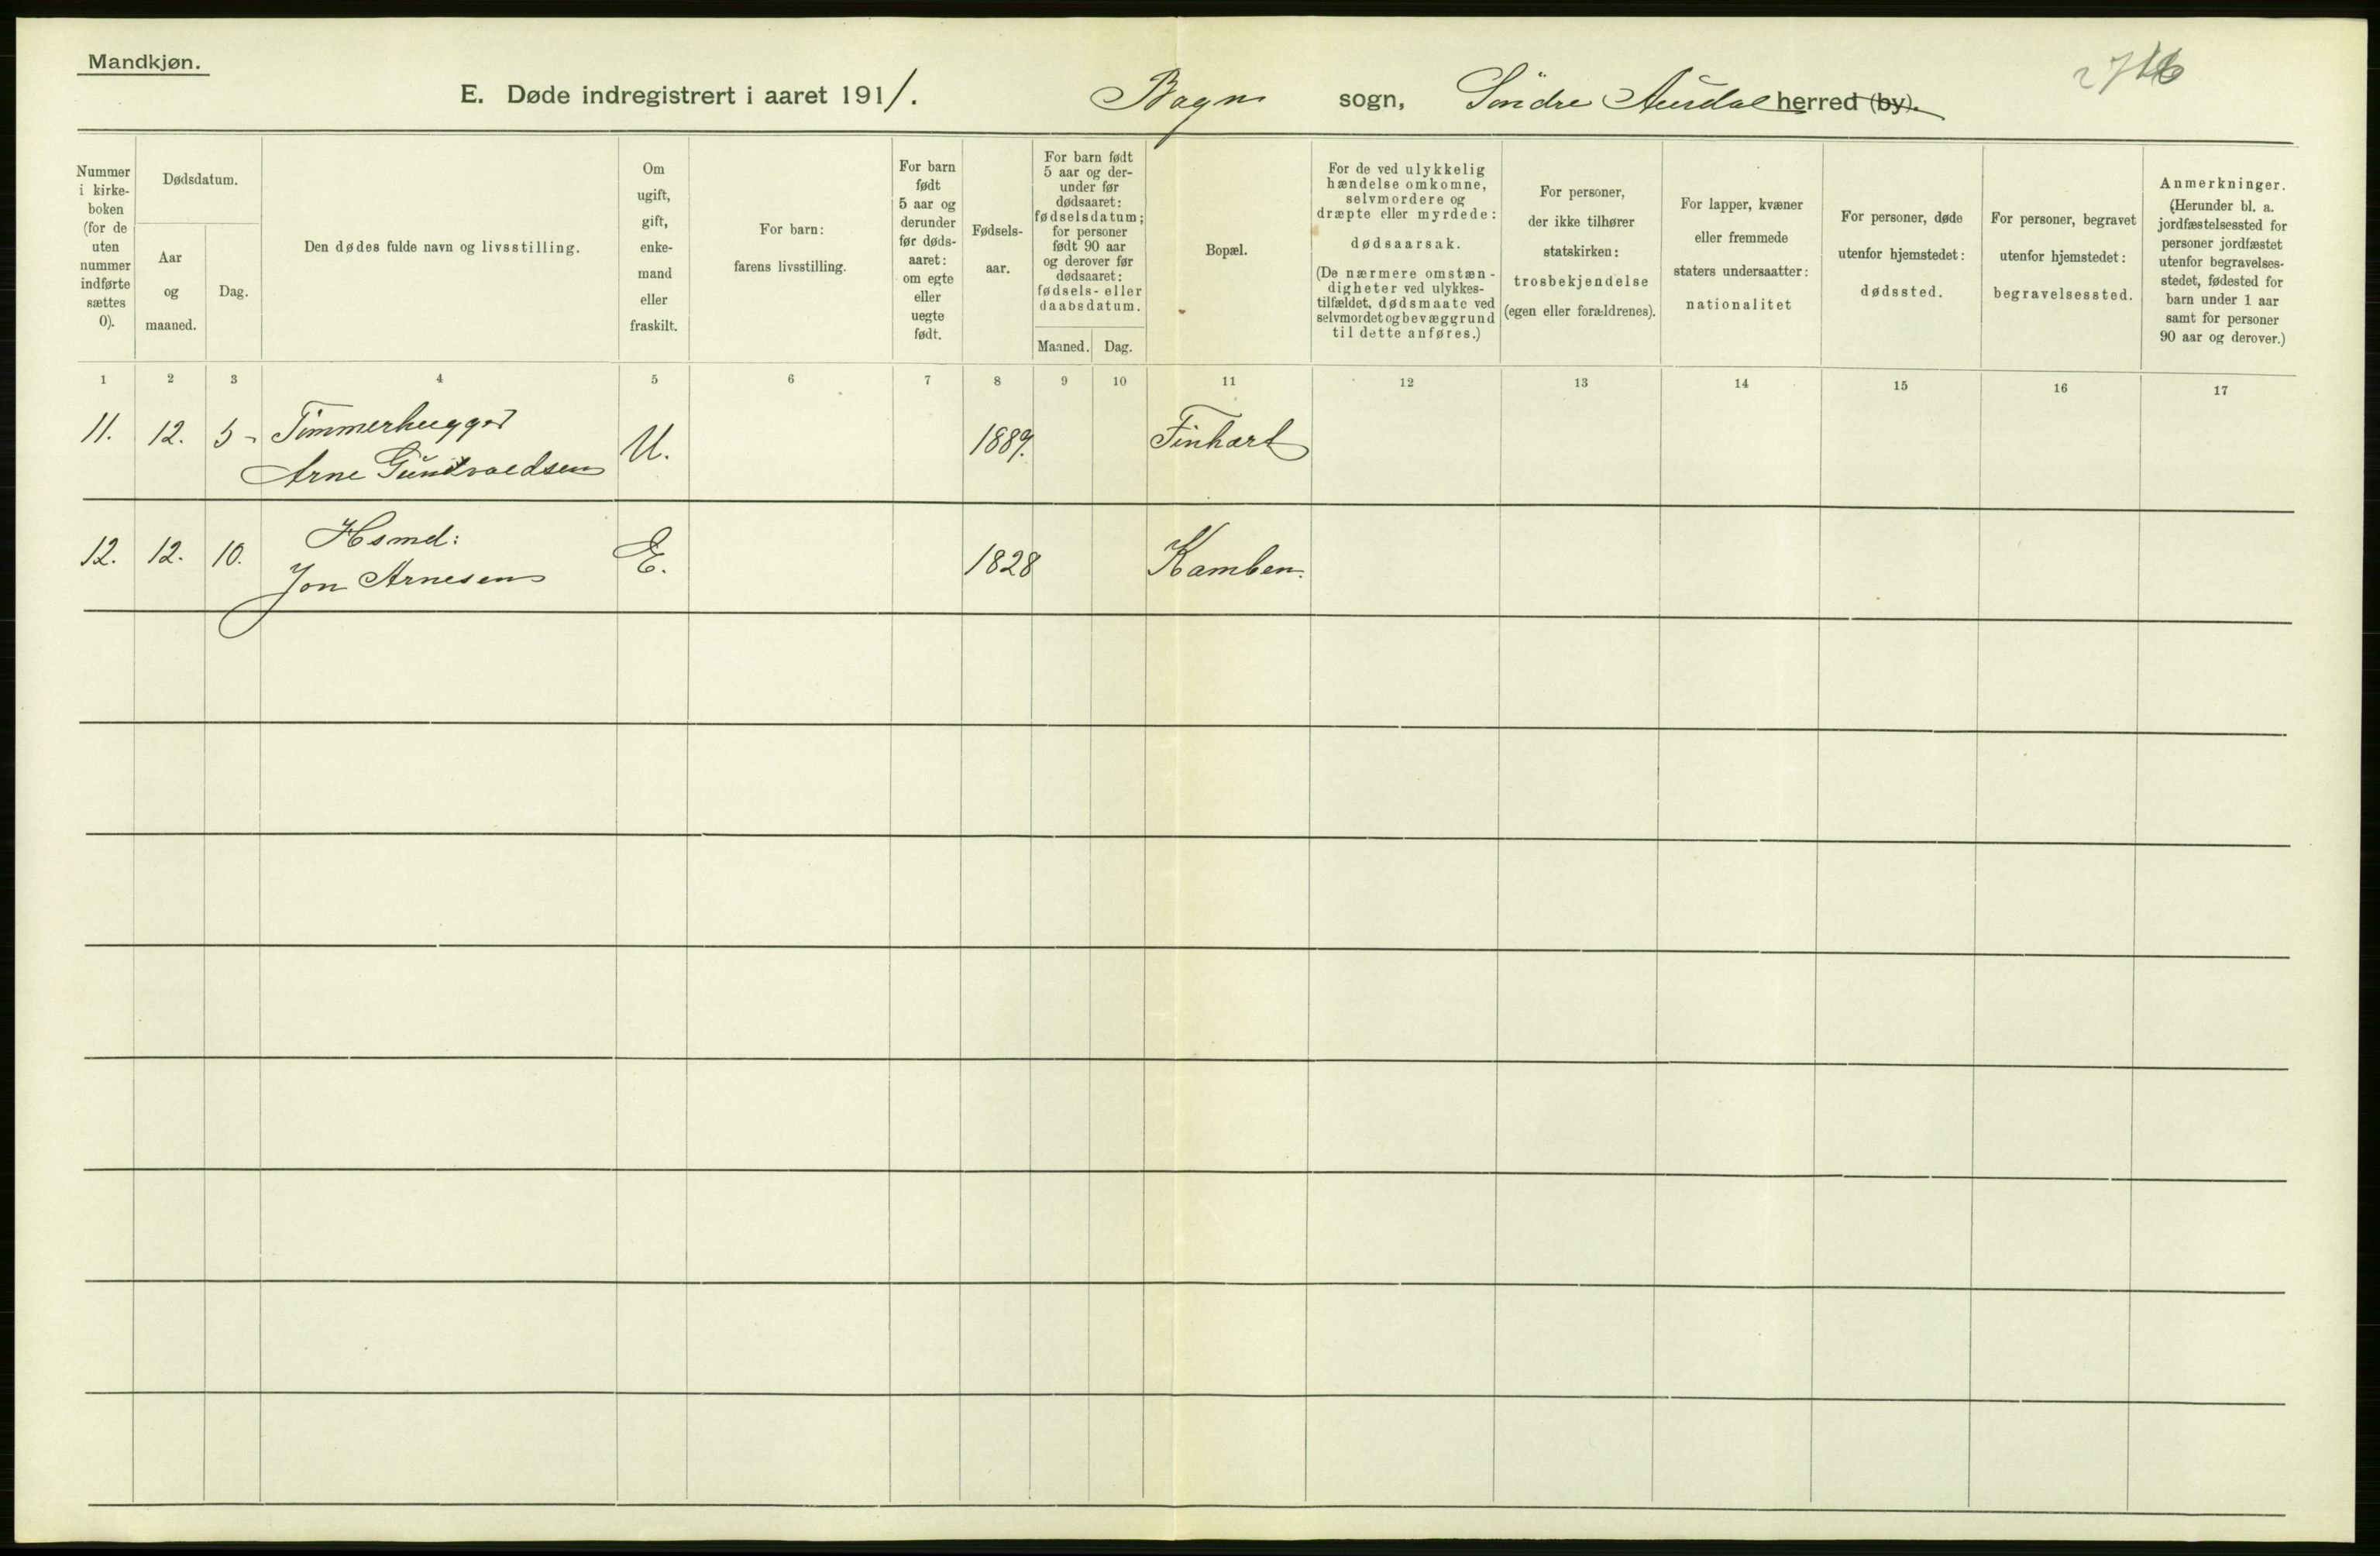 Mandkjøn.
E. Døde indregistrert i aaret 1911. Bagn sogn, Söndre Aurdal herred (by).
Nummer i kirke-boken (for de uten nummer indførte sættes 0).
Dødsdatum.
Aar og maaned.
Dag.
Den dødes fulde navn og livsstilling.
Om ugift, gift, enke-mand eller fraskilt.
For barn: farens livsstilling.
For barn født 5 aar og derunder før døds-aaret: om egte eller uegte født.
Fødsels-aar.
For barn født 5 aar og der-under før dødsaaret: fødselsdatum; for personer født 90 aar og derover før dødsaaret: fødsels- eller daabsdatum.
Maaned. Dag.
Bopæl.
For de ved ulykkelig hændelse omkomne, selvmordere og dræpte eller myrdede: dødsaarsak. (De nærmere omstæn-digheter ved ulykkes-tilfældet, dødsmaate ved selvmordet og bevæggrund til dette anføres.)
For personer, der ikke tilhører statskirken: trosbekjendelse (egen eller forældrenes).
For lapper, kvæner eller fremmede staters undersaatter: nationalitet
For personer, døde utenfor hjemstedet: dødssted.
For personer, begravet utenfor hjemstedet: begravelsessted.
Anmerkninger. (Herunder bl. a. jordfæstelsessted for personer jordfæstet utenfor begravelses-stedet, fødested for barn under 1 aar samt for personer 90 aar og derover.)
1 2 3 4 5 6 7 8 9 10 11 12 13 14 15 16 17
11. 12. 5 - Tømmerhugger
Arne Gundvaldsen U. 1889. Finhart
12. 12. 10. Hsmd:
Jon Arnesen E. 1828 Kamben.